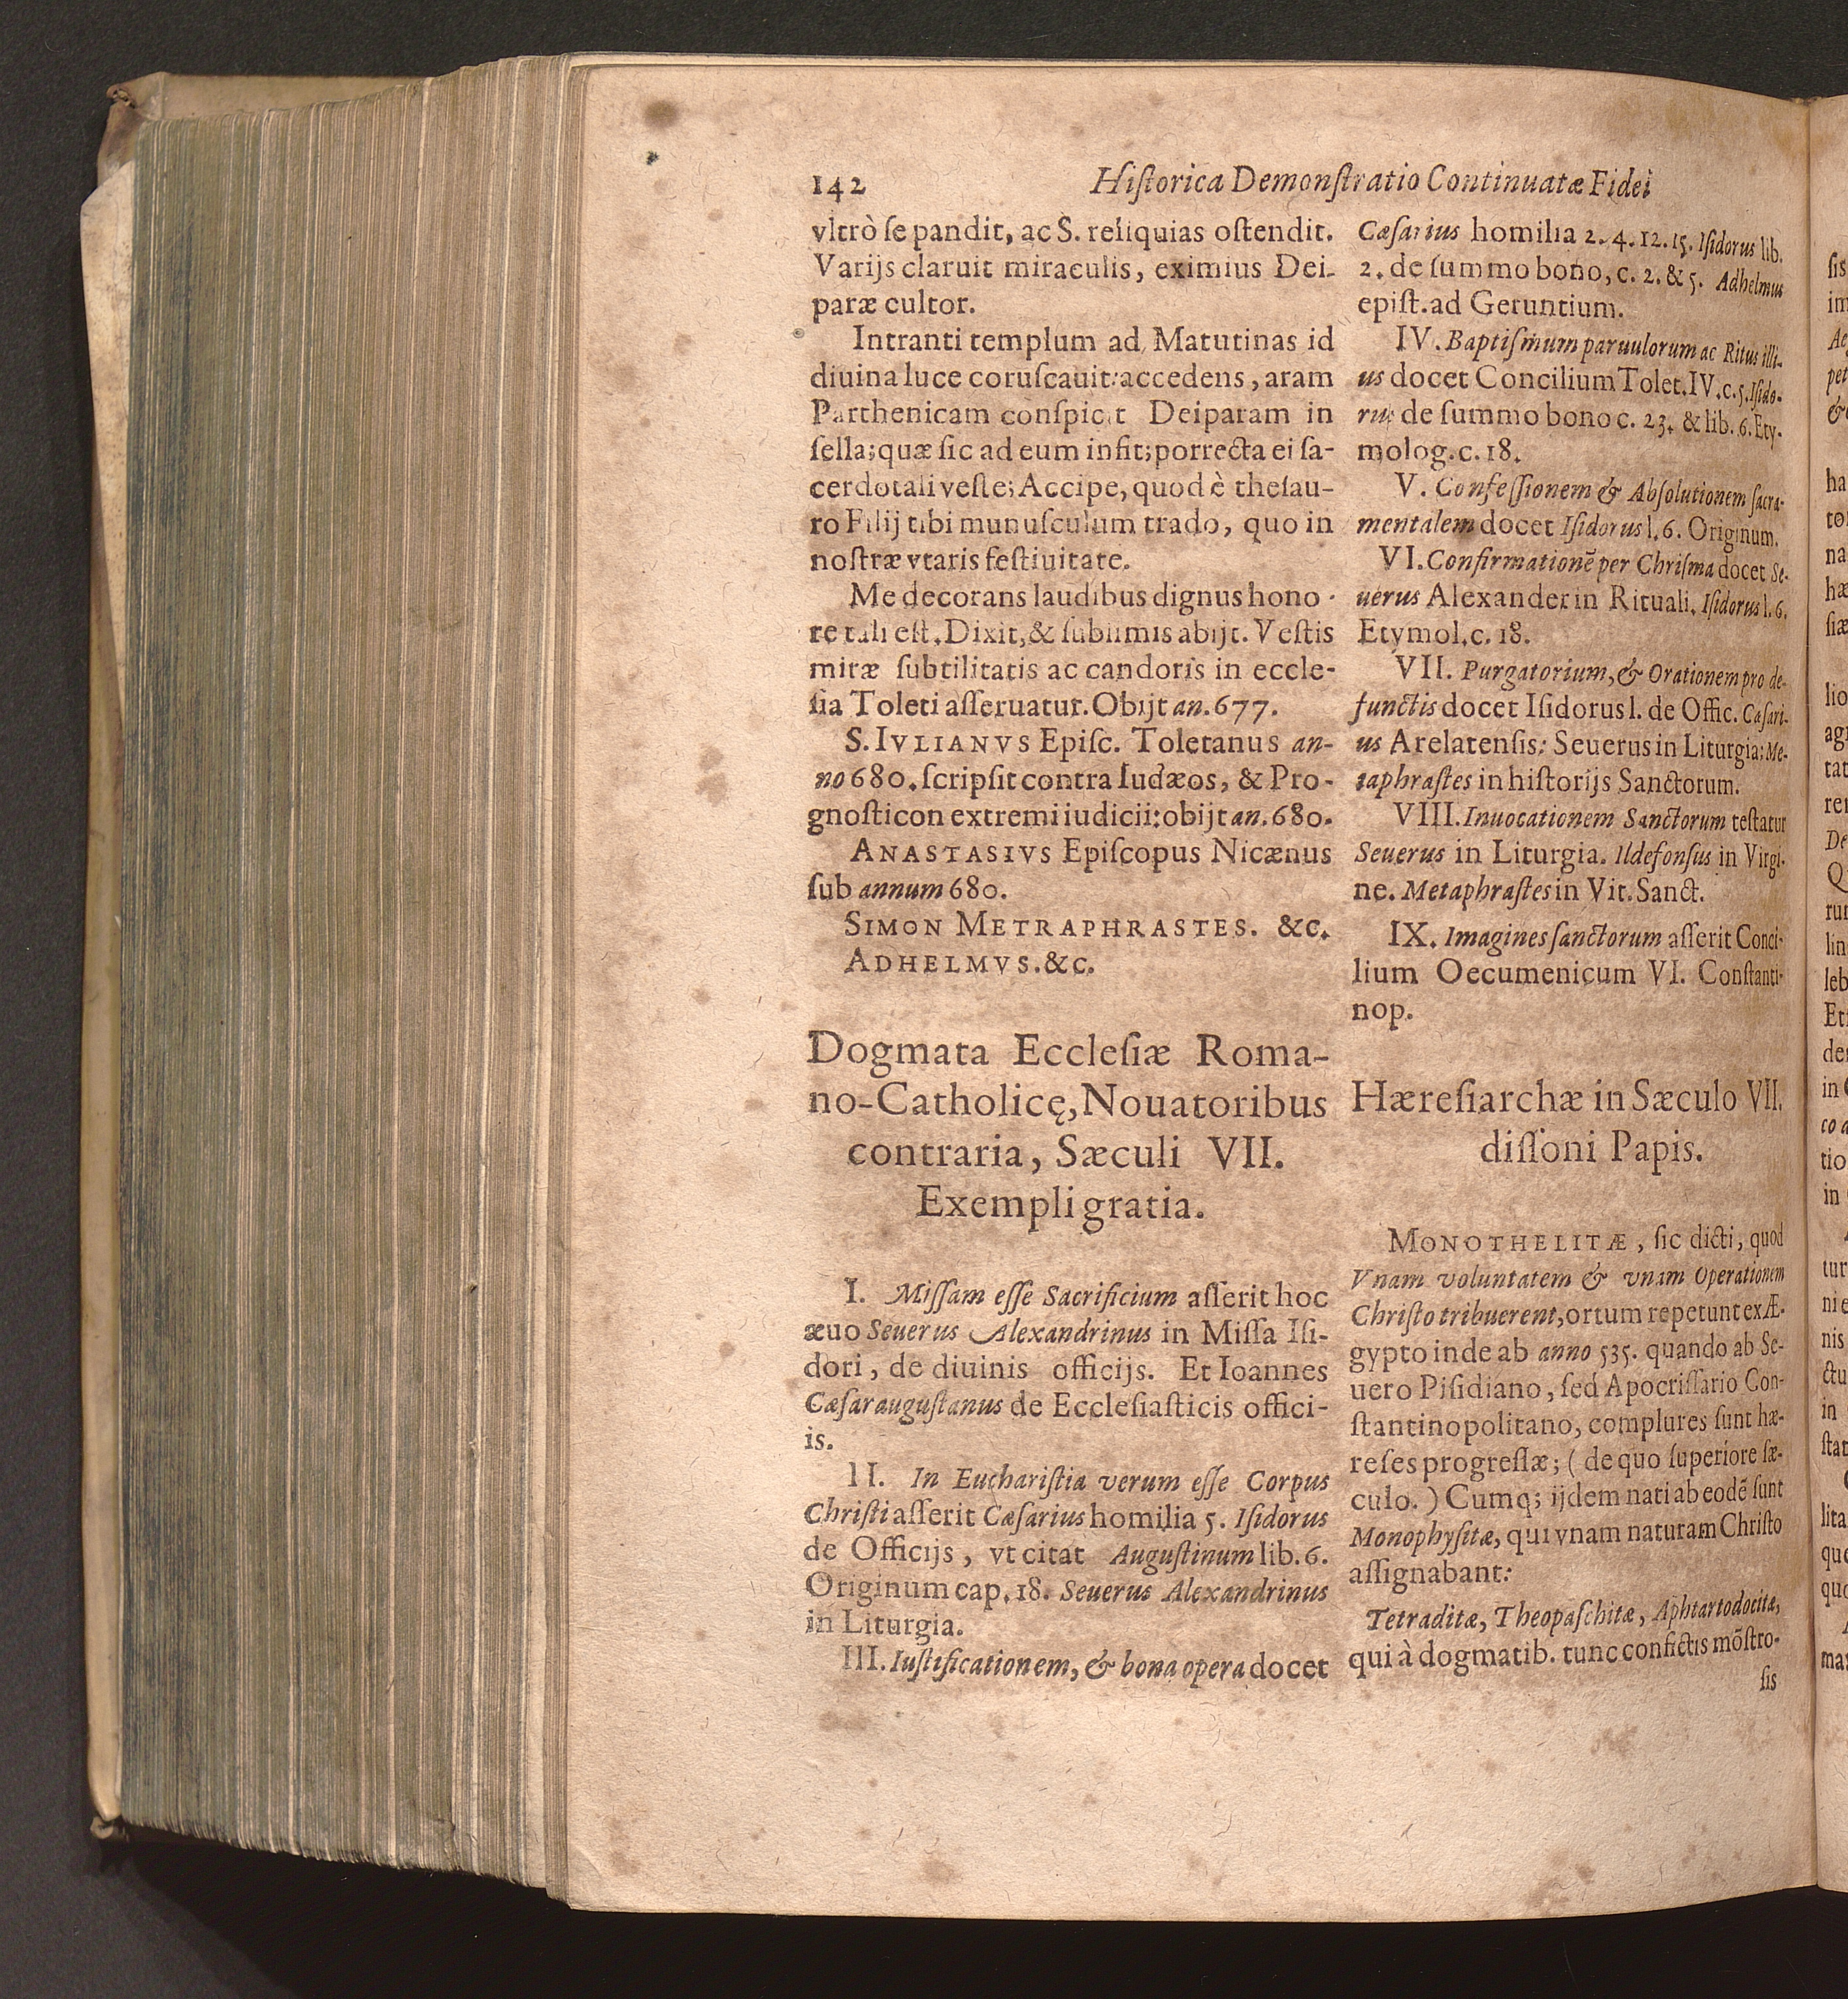 142
Hiſtorica Demonſtratio Continuatæ Fidei
vltrò ſe pandit, ac S. reliquias oſtendit.
Varijs claruit miraculis, eximius Dei-
paræ cultor.
Intranti templum ad Matutinas id
diuina luce coruſcauit: accedens, aram
Parthenicam conſpicit Deiparam in
ſella; quæ ſic ad eum infit; porrecta ei ſa-
cerdotali veſte; Accipe, quod è theſau-
ro Filij tibi munuſculum trado, quo in
noſtræ vtaris feſtiuitate.
Me decorans laudibus dignus hono-
re tali eſt. Dixit, & ſublimis abijt. Veſtis
miræ ſubtilitatis ac candoris in eccle-
ſia Toleti aſſeruatur. Obijt an. 677.
S. IVLIANVS Epiſc. Toletanus an-
no 680. ſcripſit contra Iudæos, & Pro-
gnoſticon extremi iudicii: obijt an. 680.
ANASTASIVS Epiſcopus Nicænus
ſub annum 680.
SIMON METRAPHRASTES. &c.
ADHELMVS. &c.
Dogmata Eccleſiæ Roma-
no-Catholicę, Nouatoribus
contraria, Sæculi VII.
Exempli gratia.
I. Miſſam eſſe Sacrificium aſſerit hoc
æuo Seuerus Alexandrinus in Miſſa Iſi-
dori, de diuinis officijs. Et Ioannes
Cæſaraugustanus de Eccleſiaſticis offici-
is.
II. In Euchariſtia verum eſſe Corpus
Chriſti aſſerit Cæſarius homilia 5. Iſidorus
de Officijs, vt citat Auguſtinum lib. 6.
Originum cap. 18. Seuerus Alexandrinus
in Liturgia.
III. Iuſtificationem, & bona opera docet
Cæſarius homilia 2. 4. 12. 15. Iſidorus lib.
2. de ſummo bono, c. 2. & 5. Adhelmus
epiſt. ad Geruntium.
IV. Baptiſmum paruulorum ac Ritus illi-
us docet Concilium Tolet. IV. c. 5. Iſido-
rus de ſummo bono c. 23. & lib. 6. Ety-
molog. c. 18.
V. Confeſſionem & Abſolutionem ſacra-
mentalem docet Iſidorus l. 6. Originum.
VI. Confirmationē per Chriſma docet Se-
uerus Alexander in Rituali. Iſidorus l. 6.
Etymol. c. 18.
VII. Purgatorium, & Orationem pro de-
functis docet Iſidorus l. de Offic. Cæſari-
us Arelatenſis: Seuerus in Liturgia; Me-
taphraſtes in hiſtorijs Sanctorum.
VIII. Inuocationem Sanctorum teſtatur
Seuerus in Liturgia. Ildefonſus in Virgi-
ne. Metaphraſtes in Vit. Sanct.
IX. Imagines ſanctorum aſſerit Conci-
lium Oecumenicum VI. Conſtanti-
nop.
Hæreſiarchæ in Sæculo VII.
diſſoni Papis.
MONOTHELITÆ, ſic dicti, quod
Vnam voluntatem & vnam Operationem
Chriſto tribuerent, ortum repetunt ex Æ-
gypto inde ab anno 535. quando ab Se-
uero Piſidiano, ſed Apocriſſario Con-
ſtantinopolitano, complures ſunt hæ-
reſes progreſſæ; (de quo ſuperiore ſæ-
culo.) Cumq; ijdem nati ab eodē ſunt
Monophyſitæ, qui vnam naturam Chriſto
aſſignabant:
Tetraditæ, Theopaſchitæ, Aphtartodocitæ,
qui à dogmatib. tunc confictis mōſtro-
ſis